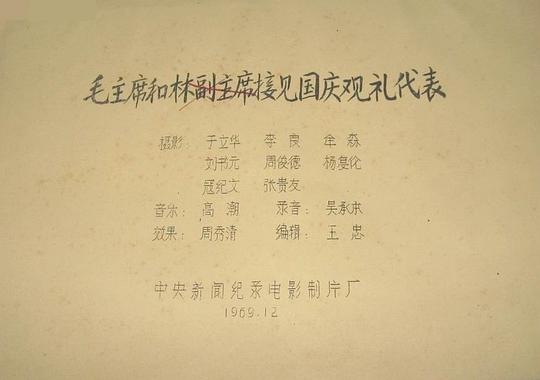 毛主席和林副主席接见国庆观礼代表
摄影: 于立华 李良 牟森
刘书元 周俊德 杨复伦
寇纪文 张贵友
音乐: 高潮 录音: 吴承本
效果: 周秀清 编辑: 王忠
中央新闻纪录电影制片厂
1969.12